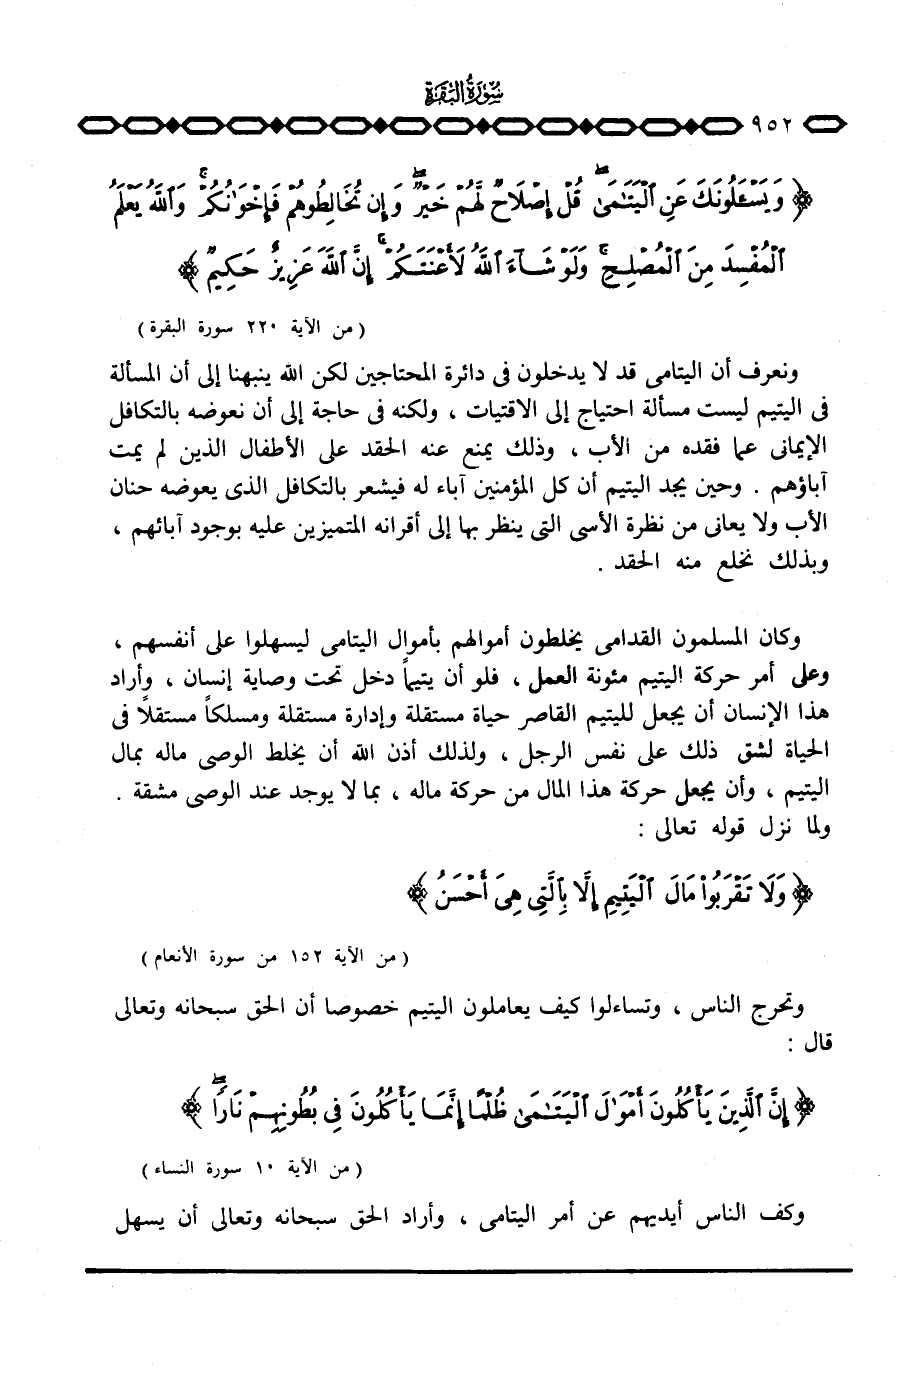 سُورَةُ البَقَرَةِ
٩٥٢
﴿ وَيَسْـَٔلُونَكَ عَنِ ٱلْيَتَـٰمَىٰۖ قُلْ إِصْلَاحٌ لَّهُمْ خَيْرٌۖ وَإِن تُخَالِطُوهُمْ فَإِخْوَٰنُكُمْۚ وَٱللَّهُ يَعْلَمُ
ٱلْمُفْسِدَ مِنَ ٱلْمُصْلِحِۚ وَلَوْ شَآءَ ٱللَّهُ لَأَعْنَتَكُمْۚ إِنَّ ٱللَّهَ عَزِيزٌ حَكِيمٌ ﴾
( من الآية ٢٢٠ سورة البقرة )
ونعرف أن اليتامى قد لا يدخلون فى دائرة المحتاجين لكن الله ينبهنا إلى أن المسألة
فى اليتيم ليست مسألة احتياج إلى الاقتيات ، ولكنه فى حاجة إلى أن نعوضه بالتكافل
الإيمانى عما فقده من الأب ، وذلك يمنع عنه الحقد على الأطفال الذين لم يمت
آباؤهم . وحين يجد اليتيم أن كل المؤمنين آباء له فيشعر بالتكافل الذى يعوضه حنان
الأب ولا يعانى من نظرة الأسى التى ينظر بها إلى أقرانه المتميزين عليه بوجود آبائهم ،
وبذلك نخلع منه الحقد .
وكان المسلمون القدامى يخلطون أموالهم بأموال اليتامى ليسهلوا على أنفسهم ،
وعلى أمر حركة اليتيم مئونة العمل ، فلو أن يتيماً دخل تحت وصاية إنسان ، وأراد
هذا الإنسان أن يجعل لليتيم القاصر حياة مستقلة وإدارة مستقلة ومسلكاً مستقلاً فى
الحياة لشق ذلك على نفس الرجل ، ولذلك أذن الله أن يخلط الوصى ماله بمال
اليتيم ، وأن يجعل حركة هذا المال من حركة ماله ، بما لا يوجد عند الوصى مشقة .
ولما نزل قوله تعالى :
﴿ وَلَا تَقْرَبُوا۟ مَالَ ٱلْيَتِيمِ إِلَّا بِٱلَّتِى هِىَ أَحْسَنُ ﴾
( من الآية ١٥٢ من سورة الأنعام )
وتحرج الناس ، وتساءلوا كيف يعاملون اليتيم خصوصا أن الحق سبحانه وتعالى
قال :
﴿ إِنَّ ٱلَّذِينَ يَأْكُلُونَ أَمْوَٰلَ ٱلْيَتَـٰمَىٰ ظُلْمًا إِنَّمَا يَأْكُلُونَ فِى بُطُونِهِمْ نَارًاۖ ﴾
( من الآية ١٠ سورة النساء )
وكف الناس أيديهم عن أمر اليتامى ، وأراد الحق سبحانه وتعالى أن يسهل